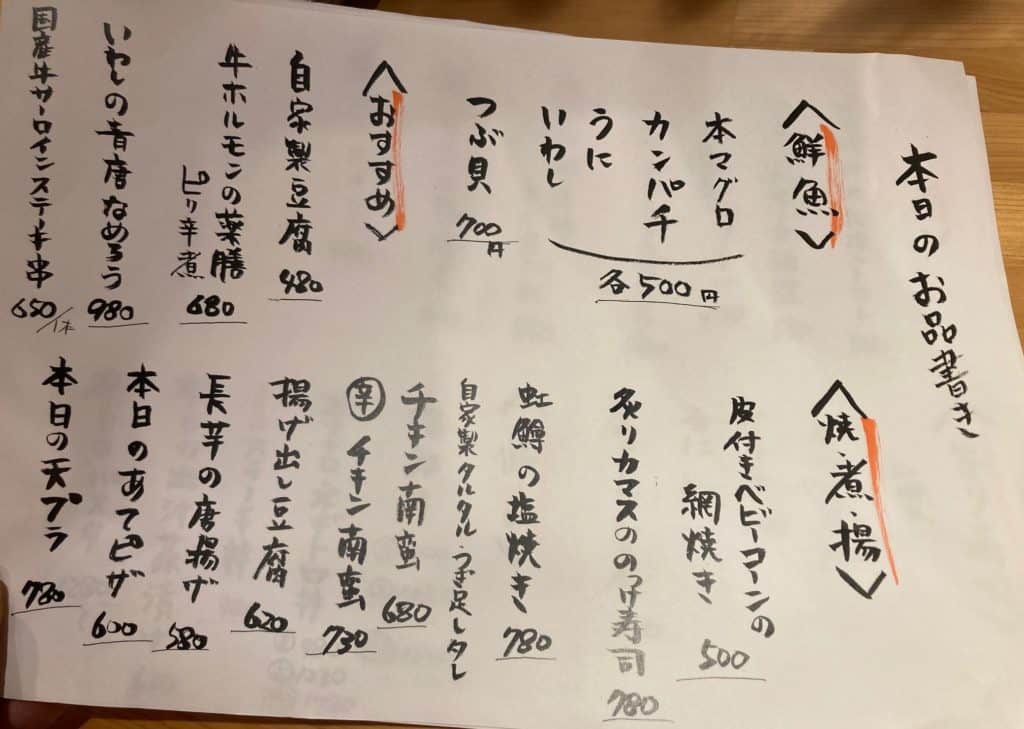 本日のお品書き
〈鮮魚〉
本マグロ
カンパチ
うに
いわし
各500円
つぶ貝
700円
〈おすすめ〉
自家製豆腐
480
牛ホルモンの薬膳
ピリ辛煮
680
いわしの青唐なめろう
980
国産牛サーロインステーキ串
650/1本
〈焼・煮・揚〉
皮付きベビーコーンの
網焼き
500
炙りカマスののっけ寿司
780
虹鱒の塩焼き
780
自家製タルタル・つぎ足しタレ
チキン南蛮
680
辛 チキン南蛮
730
揚げ出し豆腐
620
長芋の唐揚げ
580
本日のあてピザ
600
本日の天プラ
780